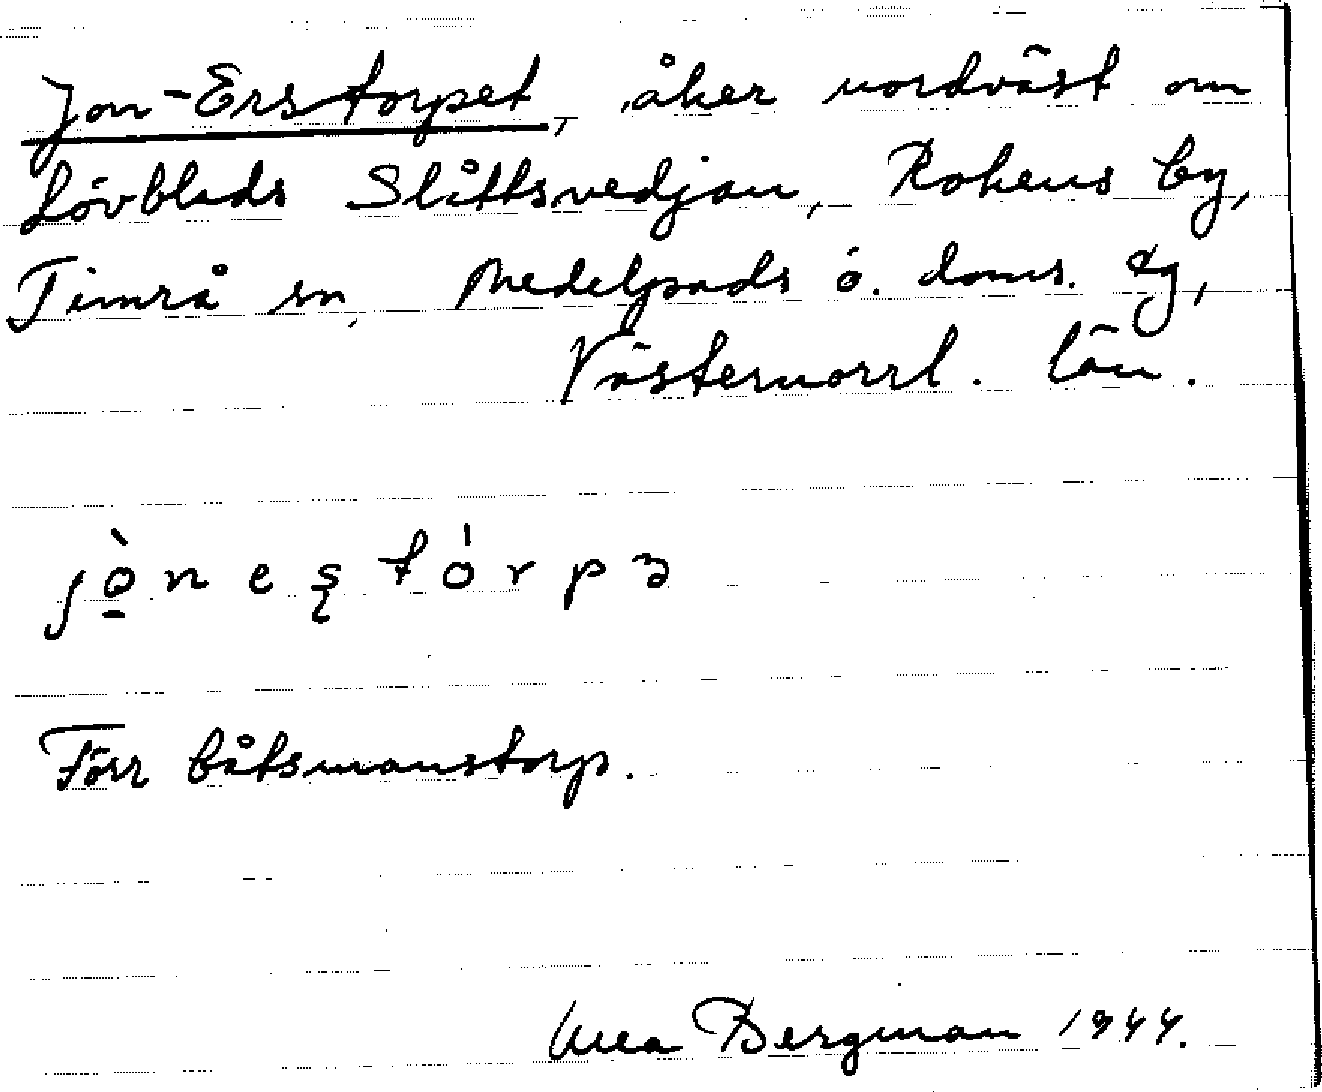 Jon-Erstorpet, åker nordväst om
Lövblads Slåttsvedjan, Rokens by,
Timrå sn, Medelpads ö. doms. tg,
Västernorrl. län.
jò̱neş tórpə
Förr båtsmanstorp.
Bergman 1944.